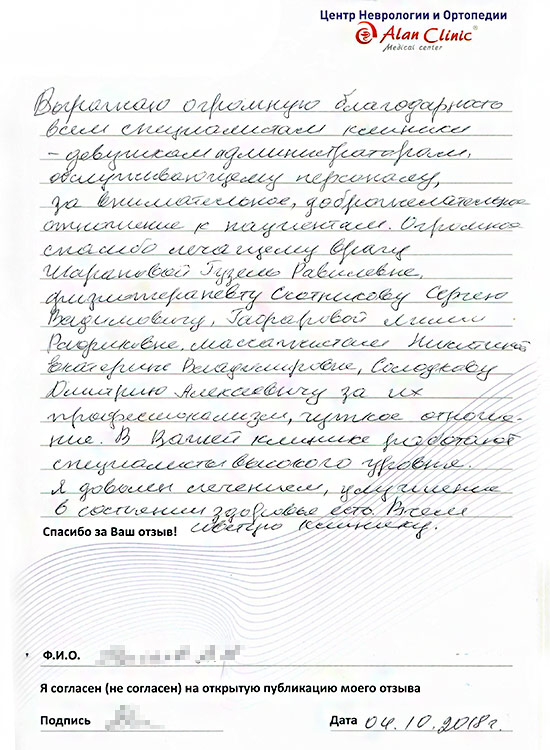 Центр Неврологии и Ортопедии
Alan Clinic®
Medical center
Выражаю огромную благодарность
всем специалистам клиники
- девушкам администраторам,
обслуживающему персоналу,
за внимательное, доброжелательное
отношение к пациентам. Огромное
спасибо лечащему врачу
Шараповой Гузель Равилевне,
физиотерапевту Скотникову Сергею
Вадимовичу, Гафаровой Лилии
Рафиковне, массажистам Никитиной
Екатерине Владимировне, Солодкову
Дмитрию Алексеевичу за их
профессионализм, чуткое отноше-
ние. В Вашей клинике работают
специалисты высокого уровня.
Я доволен лечением, улучшение
в состоянии здоровье есть. Всем
советую клинику.
Спасибо за Ваш отзыв!
Ф.И.О.
Я согласен (не согласен) на открытую публикацию моего отзыва
Подпись Дата 04.10.2018г.